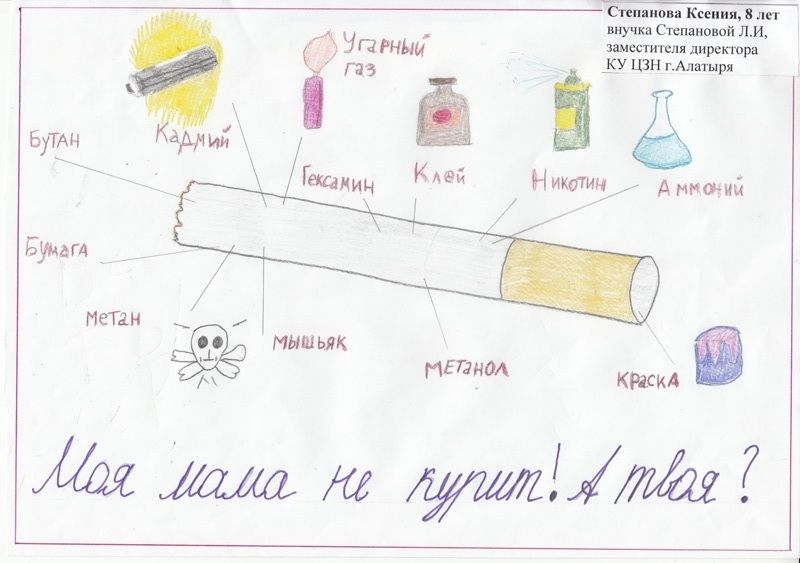 Степанова Ксения, 8 лет
внучка Степановой Л.И,
заместителя директора
КУ ЦЗН г.Алатыря
Угарный
газ
Бутан
Кадмий
Гексамин
Клей
Никотин
Аммоний
Бумага
метан
мышьяк
метанол
краска
Моя мама не курит! А твоя?